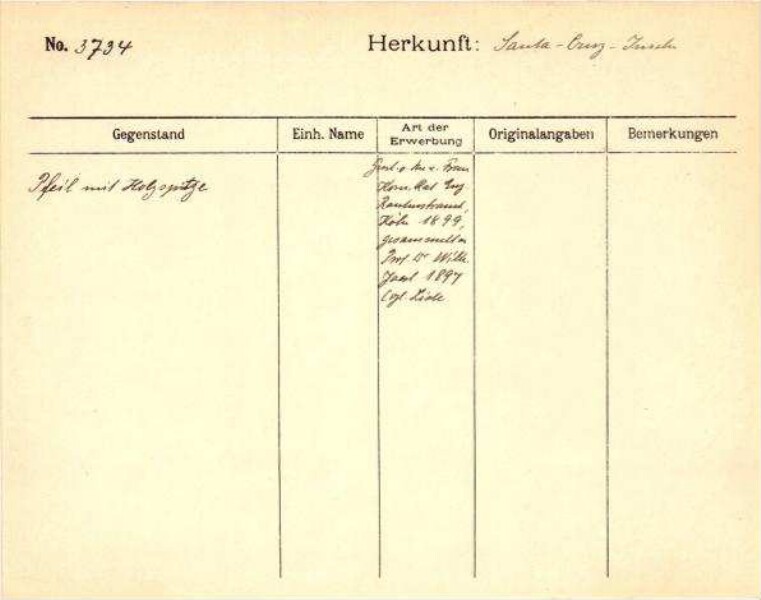 No. 3734 Herkunft: Santa-Cruz-Inseln
Gegenstand Einh. Name Art der Erwerbung Originalangaben Bemerkungen
Pfeil mit Holzspitze
Frau
Kom. Rat Eug.
Rautenstrauch,
Köln 1899,
gesammelt v.
Prof. Dr. Wilh.
Joest 1897
Vgl. Liste